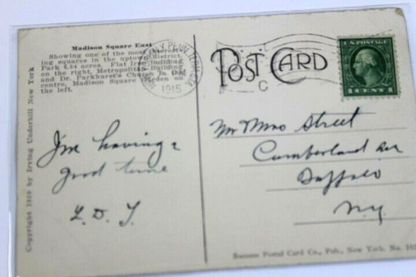 Madison Square East
Showing one of the most interest-
ing squares in the uptown district.
Park 6.84 acres. Flat Iron Building
on the right, Metropolitan Building
and Dr. Parkhurst's Church in the
centre, Madison Square Garden on
the left.
I'm having a
good time
L. D. T.
Copyright by Irving Underhill New York
1915
POST CARD
C
U.S. POSTAGE
1 CENT 1
Mr Mrs Street
Cumberland Ave
Buffalo
N.Y.
Postal Card Co., Pub., New York. No.